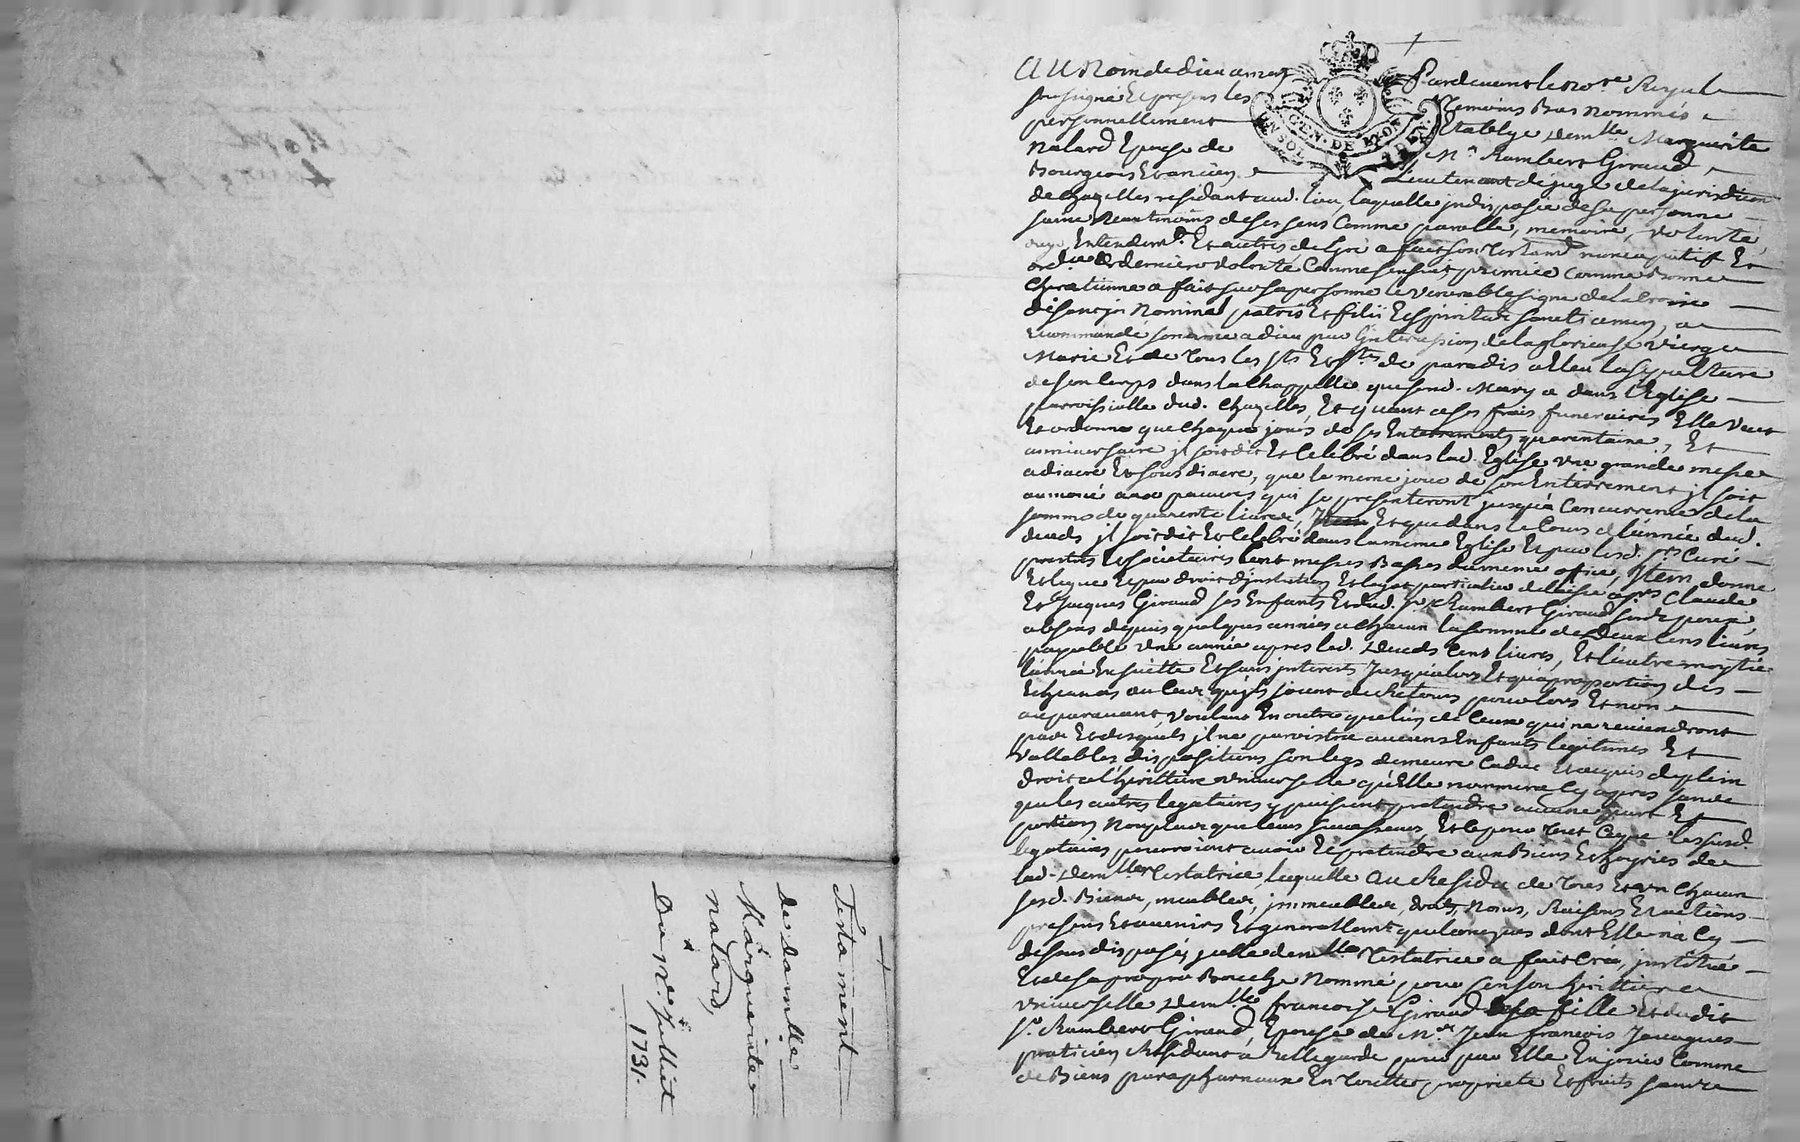 Testament
de damlle
Marguerite
nalard,
Du Nre julliet
1731.
GEN. DE LYON
Au Nom de dieu amen Pardevant le nore Royal
soussigné Et presens les Temoins Bas nommés
personnellement Etablye demlle Marguerite
Nalard Epouse de Mr. Rambert Giraud,
Bourgeois Et ancien Lieutenant de juge de la jurisdiction
de chazelles residant aud. lieu, laquelle indisposée de sa personne
saine neantmoins de ses sens comme parolle, memoire, volonté,
ouye, Entendemt. Et autres de gré a fait son Testamt nuncupatif Et
ordre de derniere volonté comme s'ensuit premier comme bonne
chretienne a fait sur sa personne le venerable signe de la croix
disant jn nomine patris Et filii Et spiritus sancti amen, a
recommandé son ame a dieu par l'intercession de la glorieuse vierge
Marie Et de Tous les sts Et stes de paradis esleu la sepulture
de son corps dans la chappelle que sond. Mary a dans l'Eglise
parroissialle dud. chazelles, Et quant a ses frais funeraires Elle veut
Et ordonne que chaque jours de ses Enterrements quarentaine, Et
anniversaire il soit dit Et celebré dans lad. Eglise une grande messe
a diacre Et sous diacre, que le meme jour de son Enterrement il soit
aumoné aux pauvres qui se presenteront jusqu'a concurrence de la
somme de quarente livres, Et que dans le cours de l'année dud.
deceds il soit dit Et celebré dans la meme Eglise Et par lesd. srs Curé
prestres societaires cent messes Basses du meme office, Item donne
Et legue Et par droit d'institution Et legat particulier delaisse a srs Claude
Et Jacques Giraud ses Enfants Et dud. sr Rambert Giraud son Epoux,
absens depuis quelques années a chacun la somme de Deux Cens livres
payable une année apres led. deceds Cent livres, Et l'autre moytié
l'année Ensuitte Et sans interests jusqu'alors Et qu'a proportion des
Echeances au cas qu'ils soient de Retours pour lors Et non
auparavant, voulant En outre que lun de ceux qui ne reviendront
pas Et desquels il ne paroistra aucuns Enfants legitimes Et
vallables dispositions son legs demeure caduc Et acquis de plein
droit a l'heritiere universelle qu'Elle nommera cy apres sans
que les autres legataires y puissent pretendre aucune part Et
portion Non plus que leurs successeurs, Et ce pour Tout ce que lesusd.
legataires pourroient avoir Et pretendre aux Biens Et hoyries de
lad. demlle Testatrice, laquelle au Residu de Tous Et un chacun
sesd. Biens, meubles, immeubles, droits, Noms, Raisons Et actions
presens Et avenirs Et generallemt quelconques dont Elle na cy
dessus disposés jcelle demlle Testatrice a fait Créé, institué
Et de sa propre Bouche Nommé pour son heritiere
universelle demlle françoise Giraud sa fille Et dudit
sr. Rambert Giraud, Epouse de Mr Jean françois
praticien Residant à Bellegarde pour par Elle En jouir Comme
de Biens paraphernaux En Toutte propriete Et fruits sans